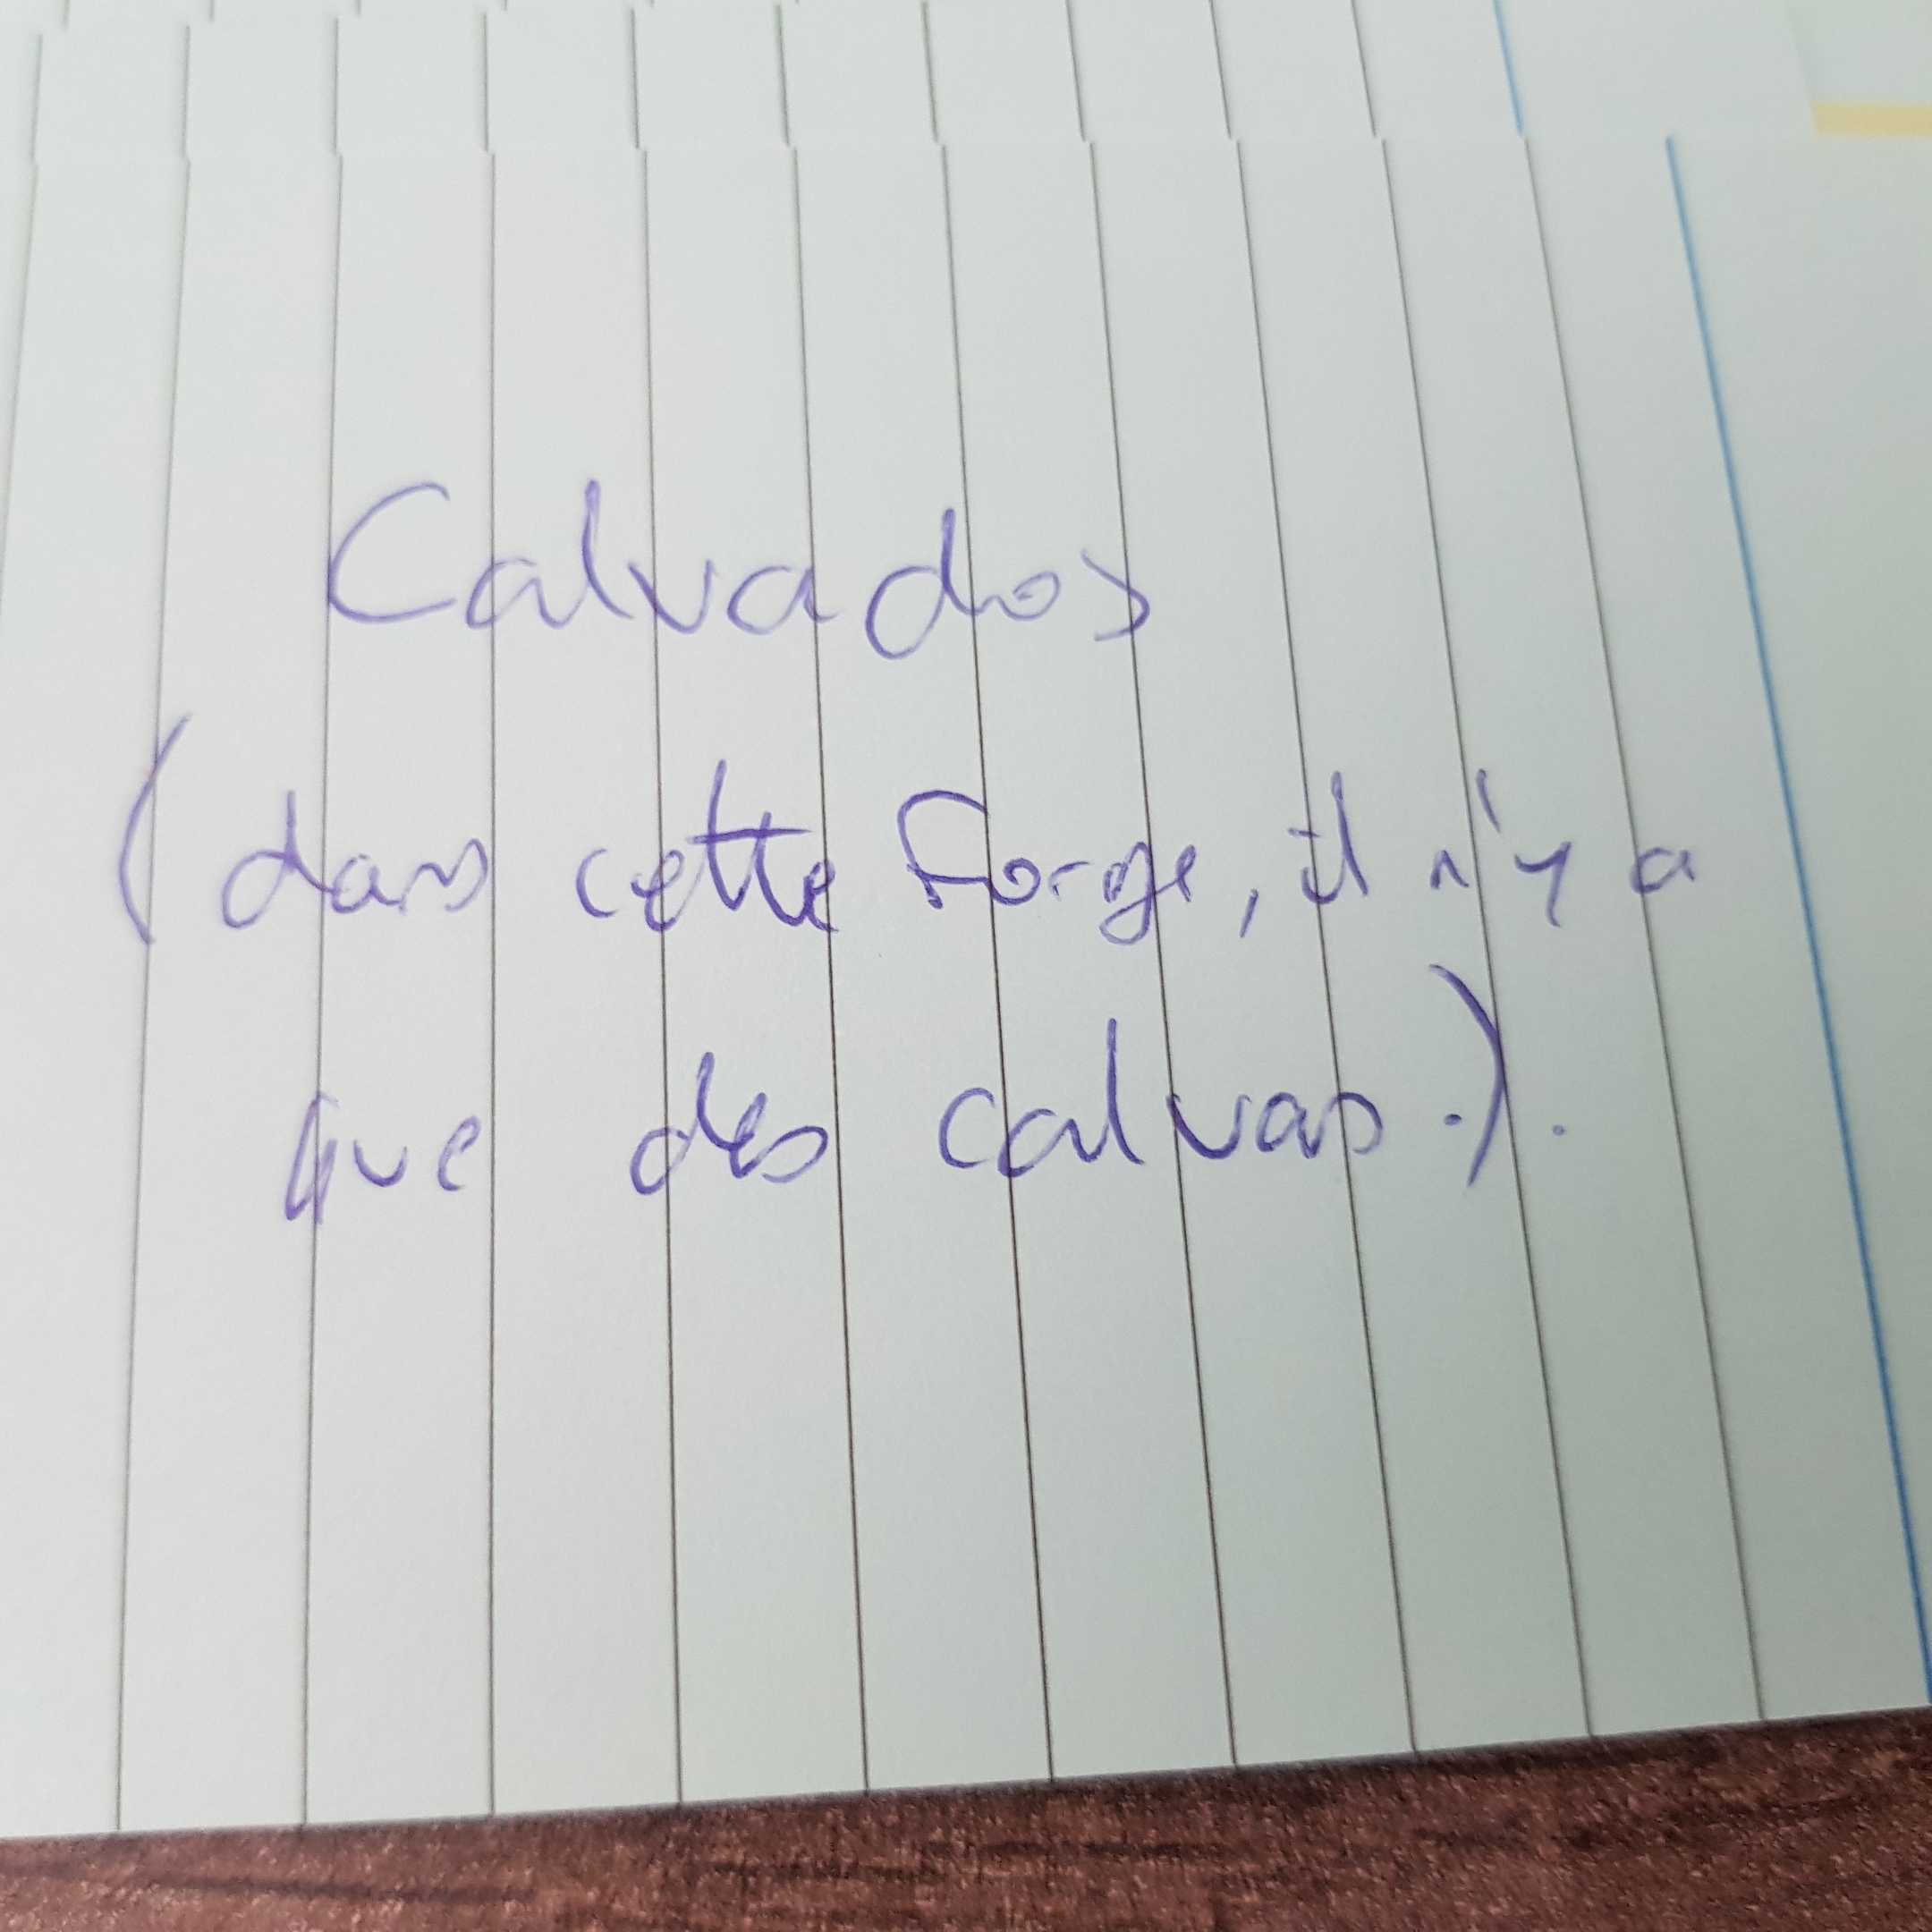 Calvados
(dans cette forge, il n'y a
que des calvas.).